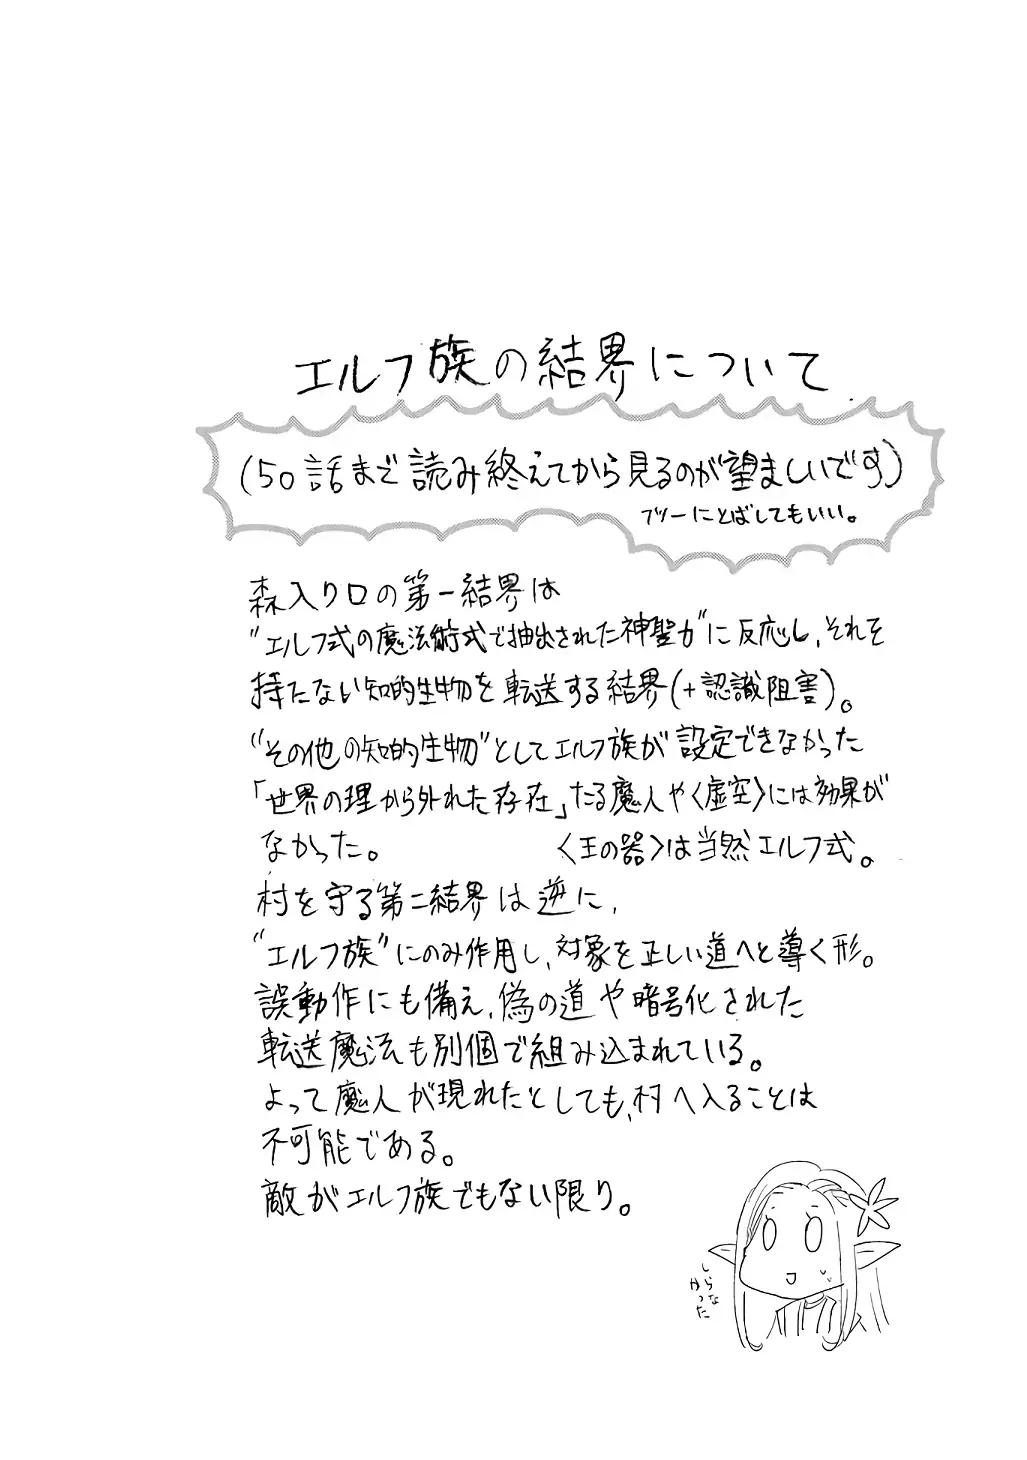 エルフ族の結界について
(50話まで読み終えてから見るのが望ましいです)
フツーにとばしてもいい。
森入り口の第一結界は
"エルフ式の魔法術式で抽出された神聖力"に反応し、それを
持たない知的生物を転送する結界(+認識阻害)。
"その他の知的生物"としてエルフ族が設定できなかった
「世界の理から外れた存在」たる魔人や〈虚空〉には効果が
なかった。
〈王の器〉は当然エルフ式。
村を守る第二結界は逆に、
"エルフ族"にのみ作用し、対象を正しい道へと導く形。
誤動作にも備え、偽の道や暗号化された
転送魔法も別個で組み込まれている。
よって魔人が現れたとしても、村へ入ることは
不可能である。
敵がエルフ族でもない限り。
しらな
かった